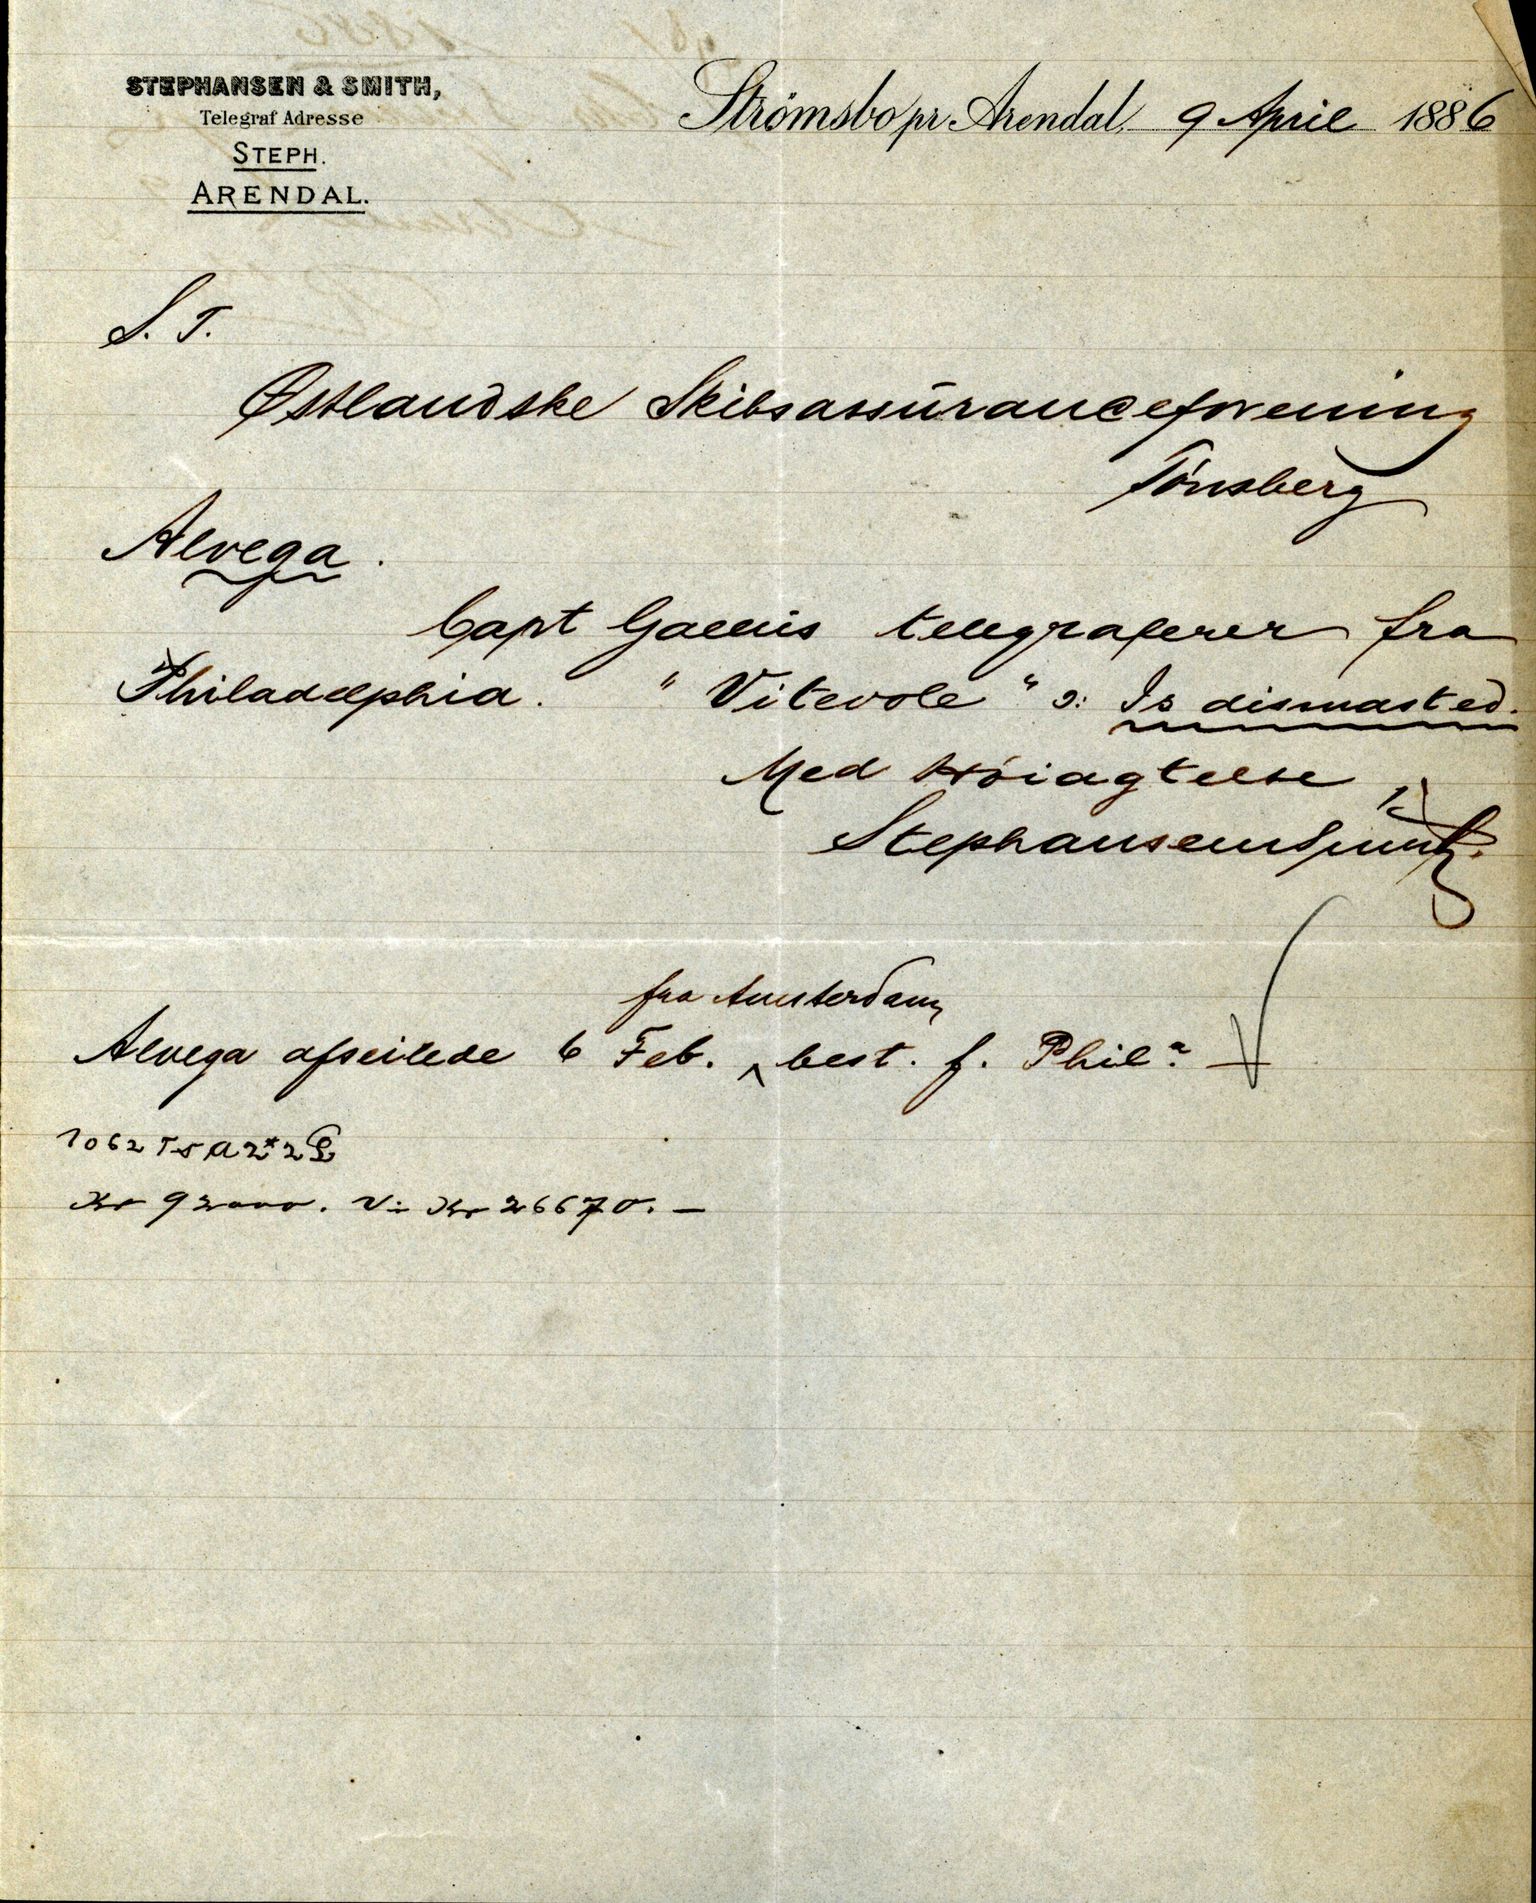 STEPHANSEN & SMITH,
Telegraf Adresse
STEPH.
ARENDAL.
Strömsbo pr. Arendal, 9 April 1886
S. T.
Østlandske Skibsassuranceforening
Tönsberg
Alvega.
Capt telegraferer fra
Philadelphia. "Vitevole" ɔ: Is dismasted.
Med Höiagtelse
Stephansen Smith.
fra Amsterdam
Alvega afseilede 6 Feb. ^ best. f. Phil.ª —
1062 Ts A 2* 2
Kr 92000. V: Kr 26670. —